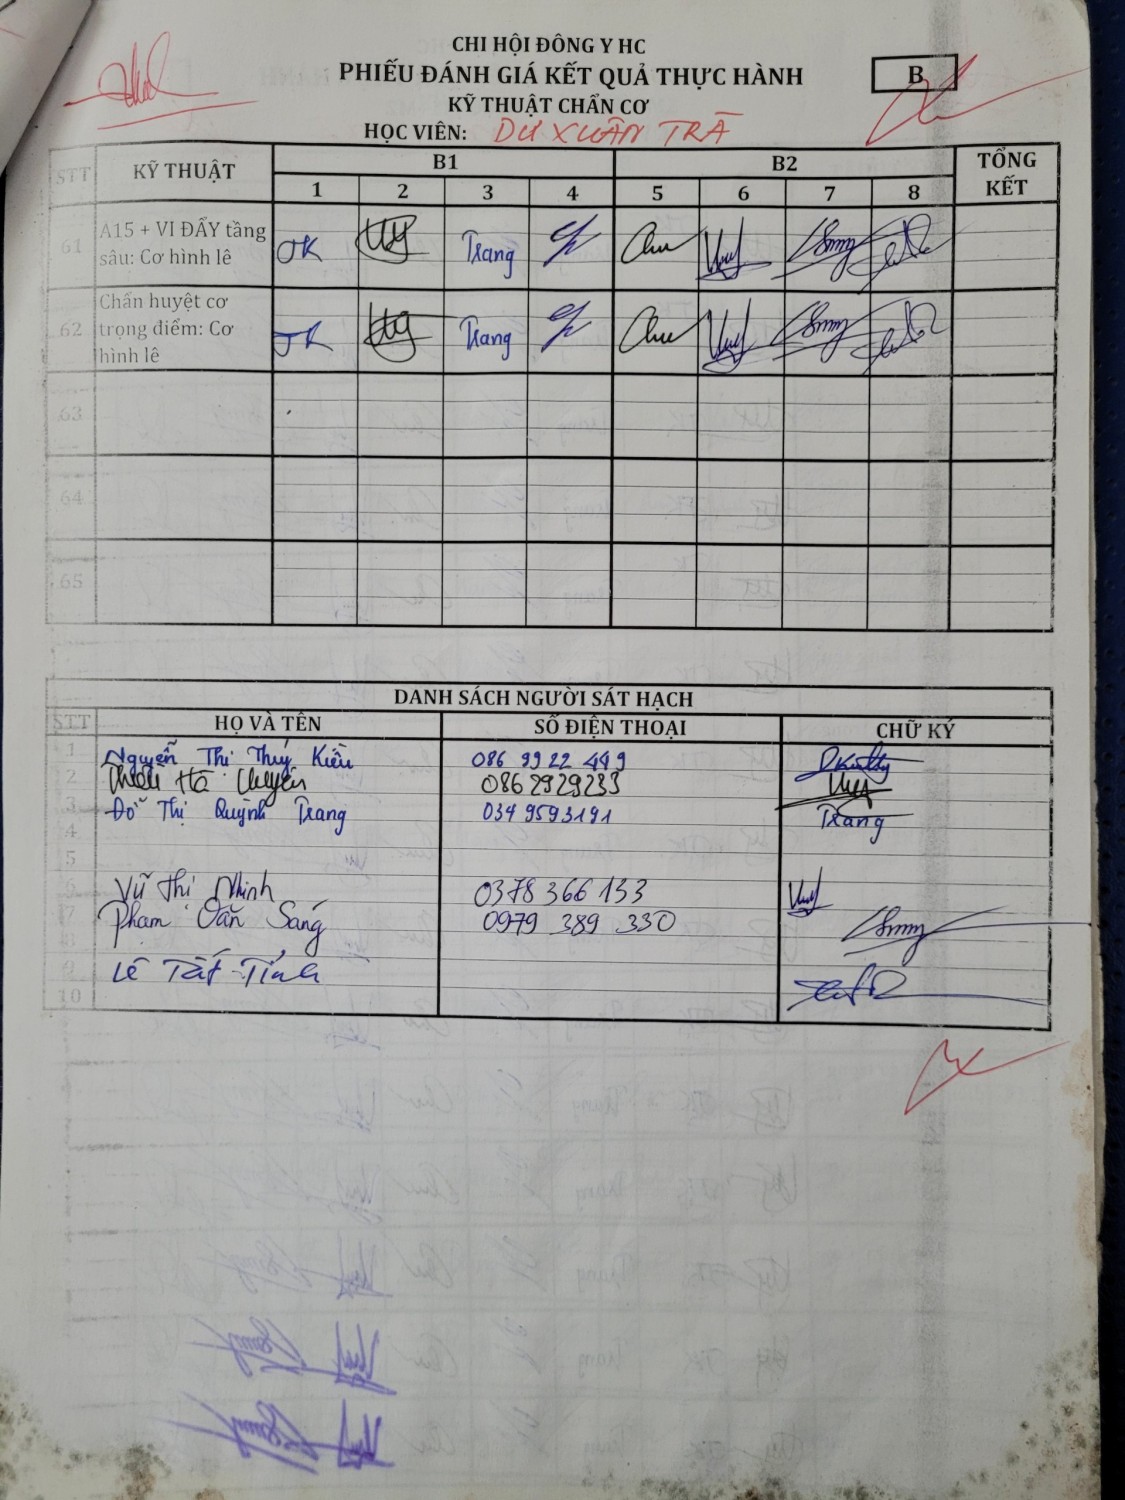 CHI HỘI ĐÔNG Y HC
PHIẾU ĐÁNH GIÁ KẾT QUẢ THỰC HÀNH
B
KỸ THUẬT CHẨN CƠ
HỌC VIÊN: DƯ XUÂN TRÀ
STT KỸ THUẬT B1 B2 TỔNG KẾT
1 2 3 4 5 6 7 8
61 A15 + VI ĐẨY tầng sâu: Cơ hình lê Trang
62 Chẩn huyệt cơ trọng điểm: Cơ hình lê Trang
63
64
65
DANH SÁCH NGƯỜI SÁT HẠCH
STT HỌ VÀ TÊN SỐ ĐIỆN THOẠI CHỮ KÝ
1 Nguyễn Thị Thúy Kiều 086 9922 449
2 Hà 0862929233
3 Đỗ Thị Quỳnh Trang 0349593191 Trang
4
5
6 Vũ Thị Minh 0378 366 133
7 Phạm Văn Sáng 0979 389 330
8
9 Lê Tất Tính
10